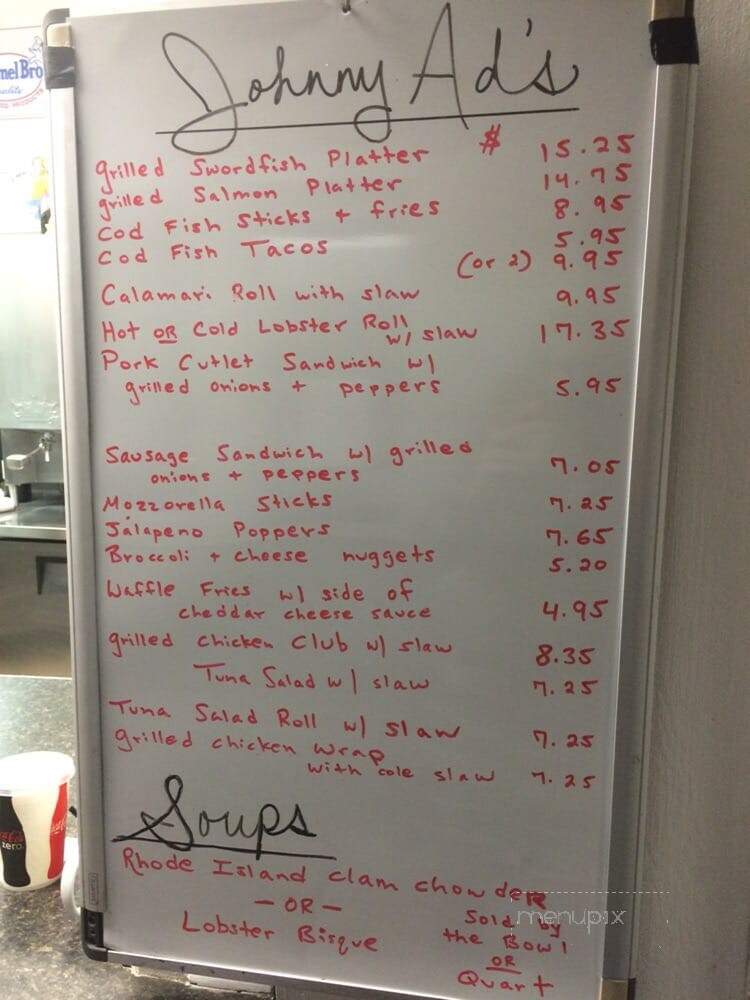 Johnny Ad's
grilled Swordfish Platter $ 15.25
grilled Salmon Platter 14.75
Cod Fish Sticks + fries 8.95
Cod Fish Tacos 5.95
(or 2) 9.95
Calamari Roll with slaw 9.95
Hot OR Cold Lobster Roll w/ slaw 17.35
Pork Cutlet Sandwich w/
grilled onions + peppers 5.95
Sausage Sandwich w/ grilled
onions + peppers 7.05
Mozzorella Sticks 7.25
Jalapeno Poppers 7.65
Broccoli + cheese nuggets 5.20
Waffle Fries w/ side of
cheddar cheese sauce 4.95
grilled chicken Club w/ slaw 8.35
Tuna Salad w/ slaw 7.25
Tuna Salad Roll w/ slaw 7.25
grilled chicken wrap
with cole slaw 7.25
Soups
Rhode Island clam chowdeR
- OR -
Lobster Bisque
Sold by
the Bowl
OR
Quart
menupix
mel Bro
zero